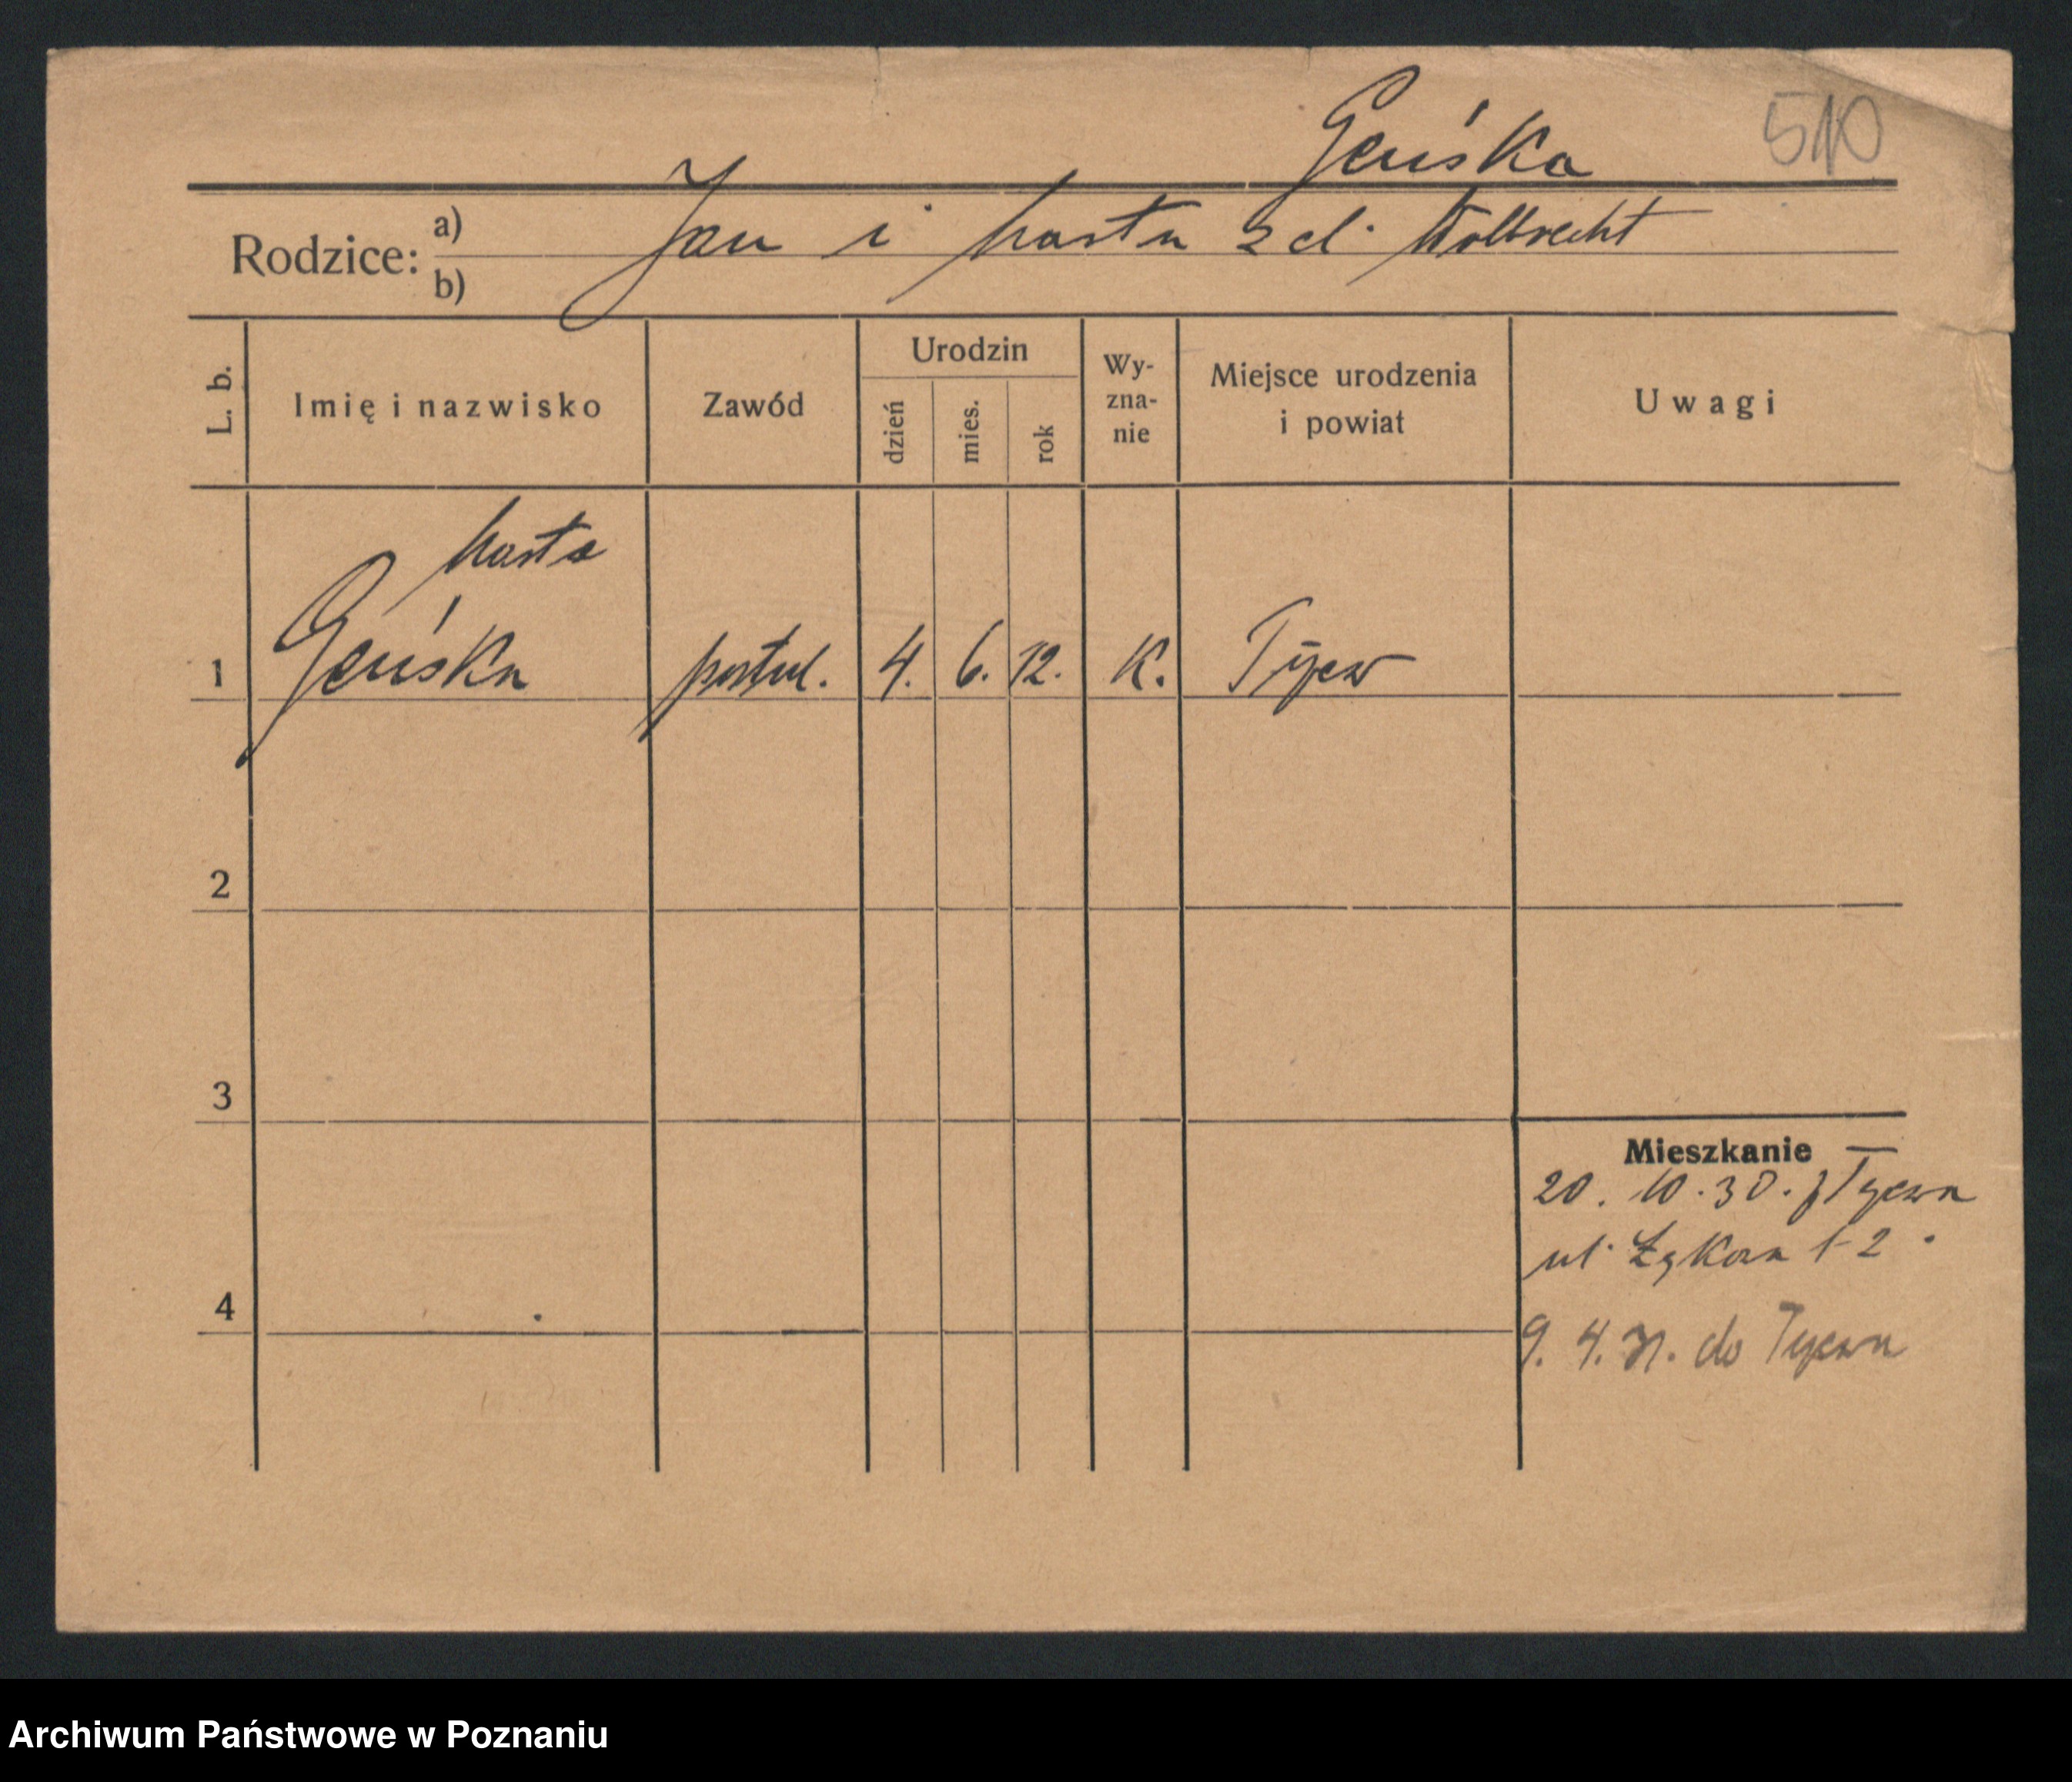 Geńska 510
Rodzice: a) Jan i Marta z d. Wolbrecht
b)
L. b. Imię i nazwisko Zawód Urodzin dzień mies. rok Wy-zna-nie Miejsce urodzenia i powiat Uwagi
Marta
1 Geńska postul. 4. 6. 12. K. Tczew
2
3
Mieszkanie
20. 10. 30. z Tczewa
ul. Łąkowa 1-2.
4
9. 4. 31. do Tczewa
Archiwum Państwowe w Poznaniu